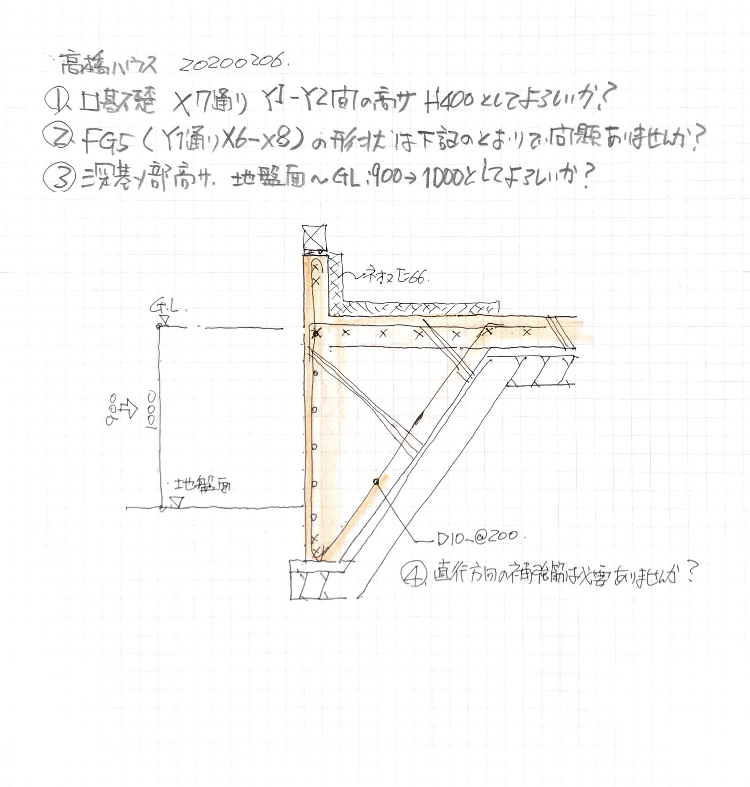 高橋ハウス 20200206.
① 口基礎 X7通り Y1-Y2間の高サ H400としてよろしいか?
② FG5 (Y1通りX6-X8) の形状は下記のとおりで問題ありませんか?
③ 深基ソ部高サ. 地盤面~GL:900→1000としてよろしいか?
ネオマE66.
G.L.
900⇨1000
地盤面
D10-@200.
④ 直行方向の補強筋は必要ありませんか?